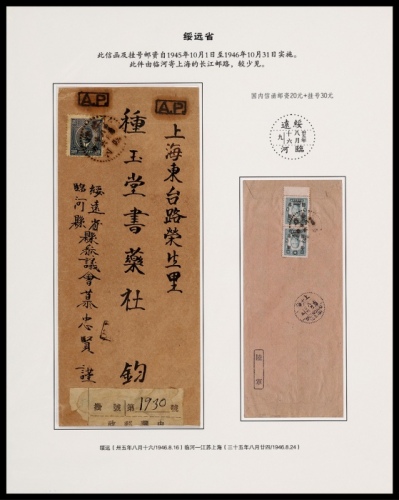 绥远省
此信函及挂号邮资自1945年10月1日至1946年10月31日实施。
此件由临河寄上海的长江邮路，较少见。
国内信函邮资20元+挂号30元
綏遠
八月
十六
九
臨河
A.P
A.P
上海東台路榮生里
種玉堂書藥社 鈞
綏遠省縣參議會慕忠賢 謹
臨河縣
掛號第1930號
绥远（卅五年八月十六/1946.8.16）临河—江苏上海（三十五年八月廿四/1946.8.24）